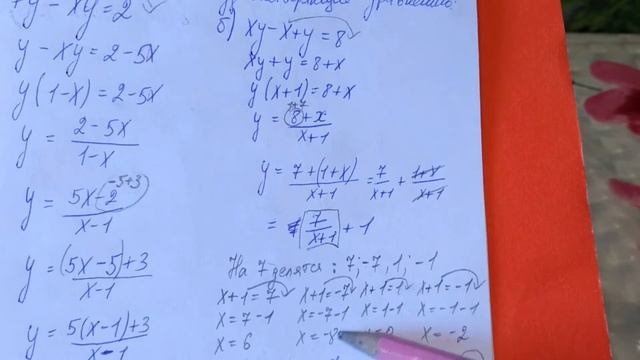 +y - xy = 2
y - xy = 2 - 5x
y(1-x) = 2 - 5x
y = \frac{2-5x}{1-x}
y = \frac{5x-2^{-5+3}}{x-1}
y = \frac{(5x-5)+3}{x-1}
y = \frac{5(x-1)+3}{x-1}
уравнению:
б) xy - x + y = 8
xy + y = 8 + x
y(x+1) = 8 + x
y = \frac{8^{1+7}+x}{x+1}
y = \frac{7+(1+x)}{x+1} = \frac{7}{x+1} + \frac{1+x}{x+1}
= \frac{7}{x+1} + 1
На 7 делятся: 7; -7, 1; -1
x+1=7 x+1=-7 x+1=1 x+1=-1
x=7-1 x=-7-1 x=1-1 x=-1-1
x=6 x=-8 x=0 x=-2